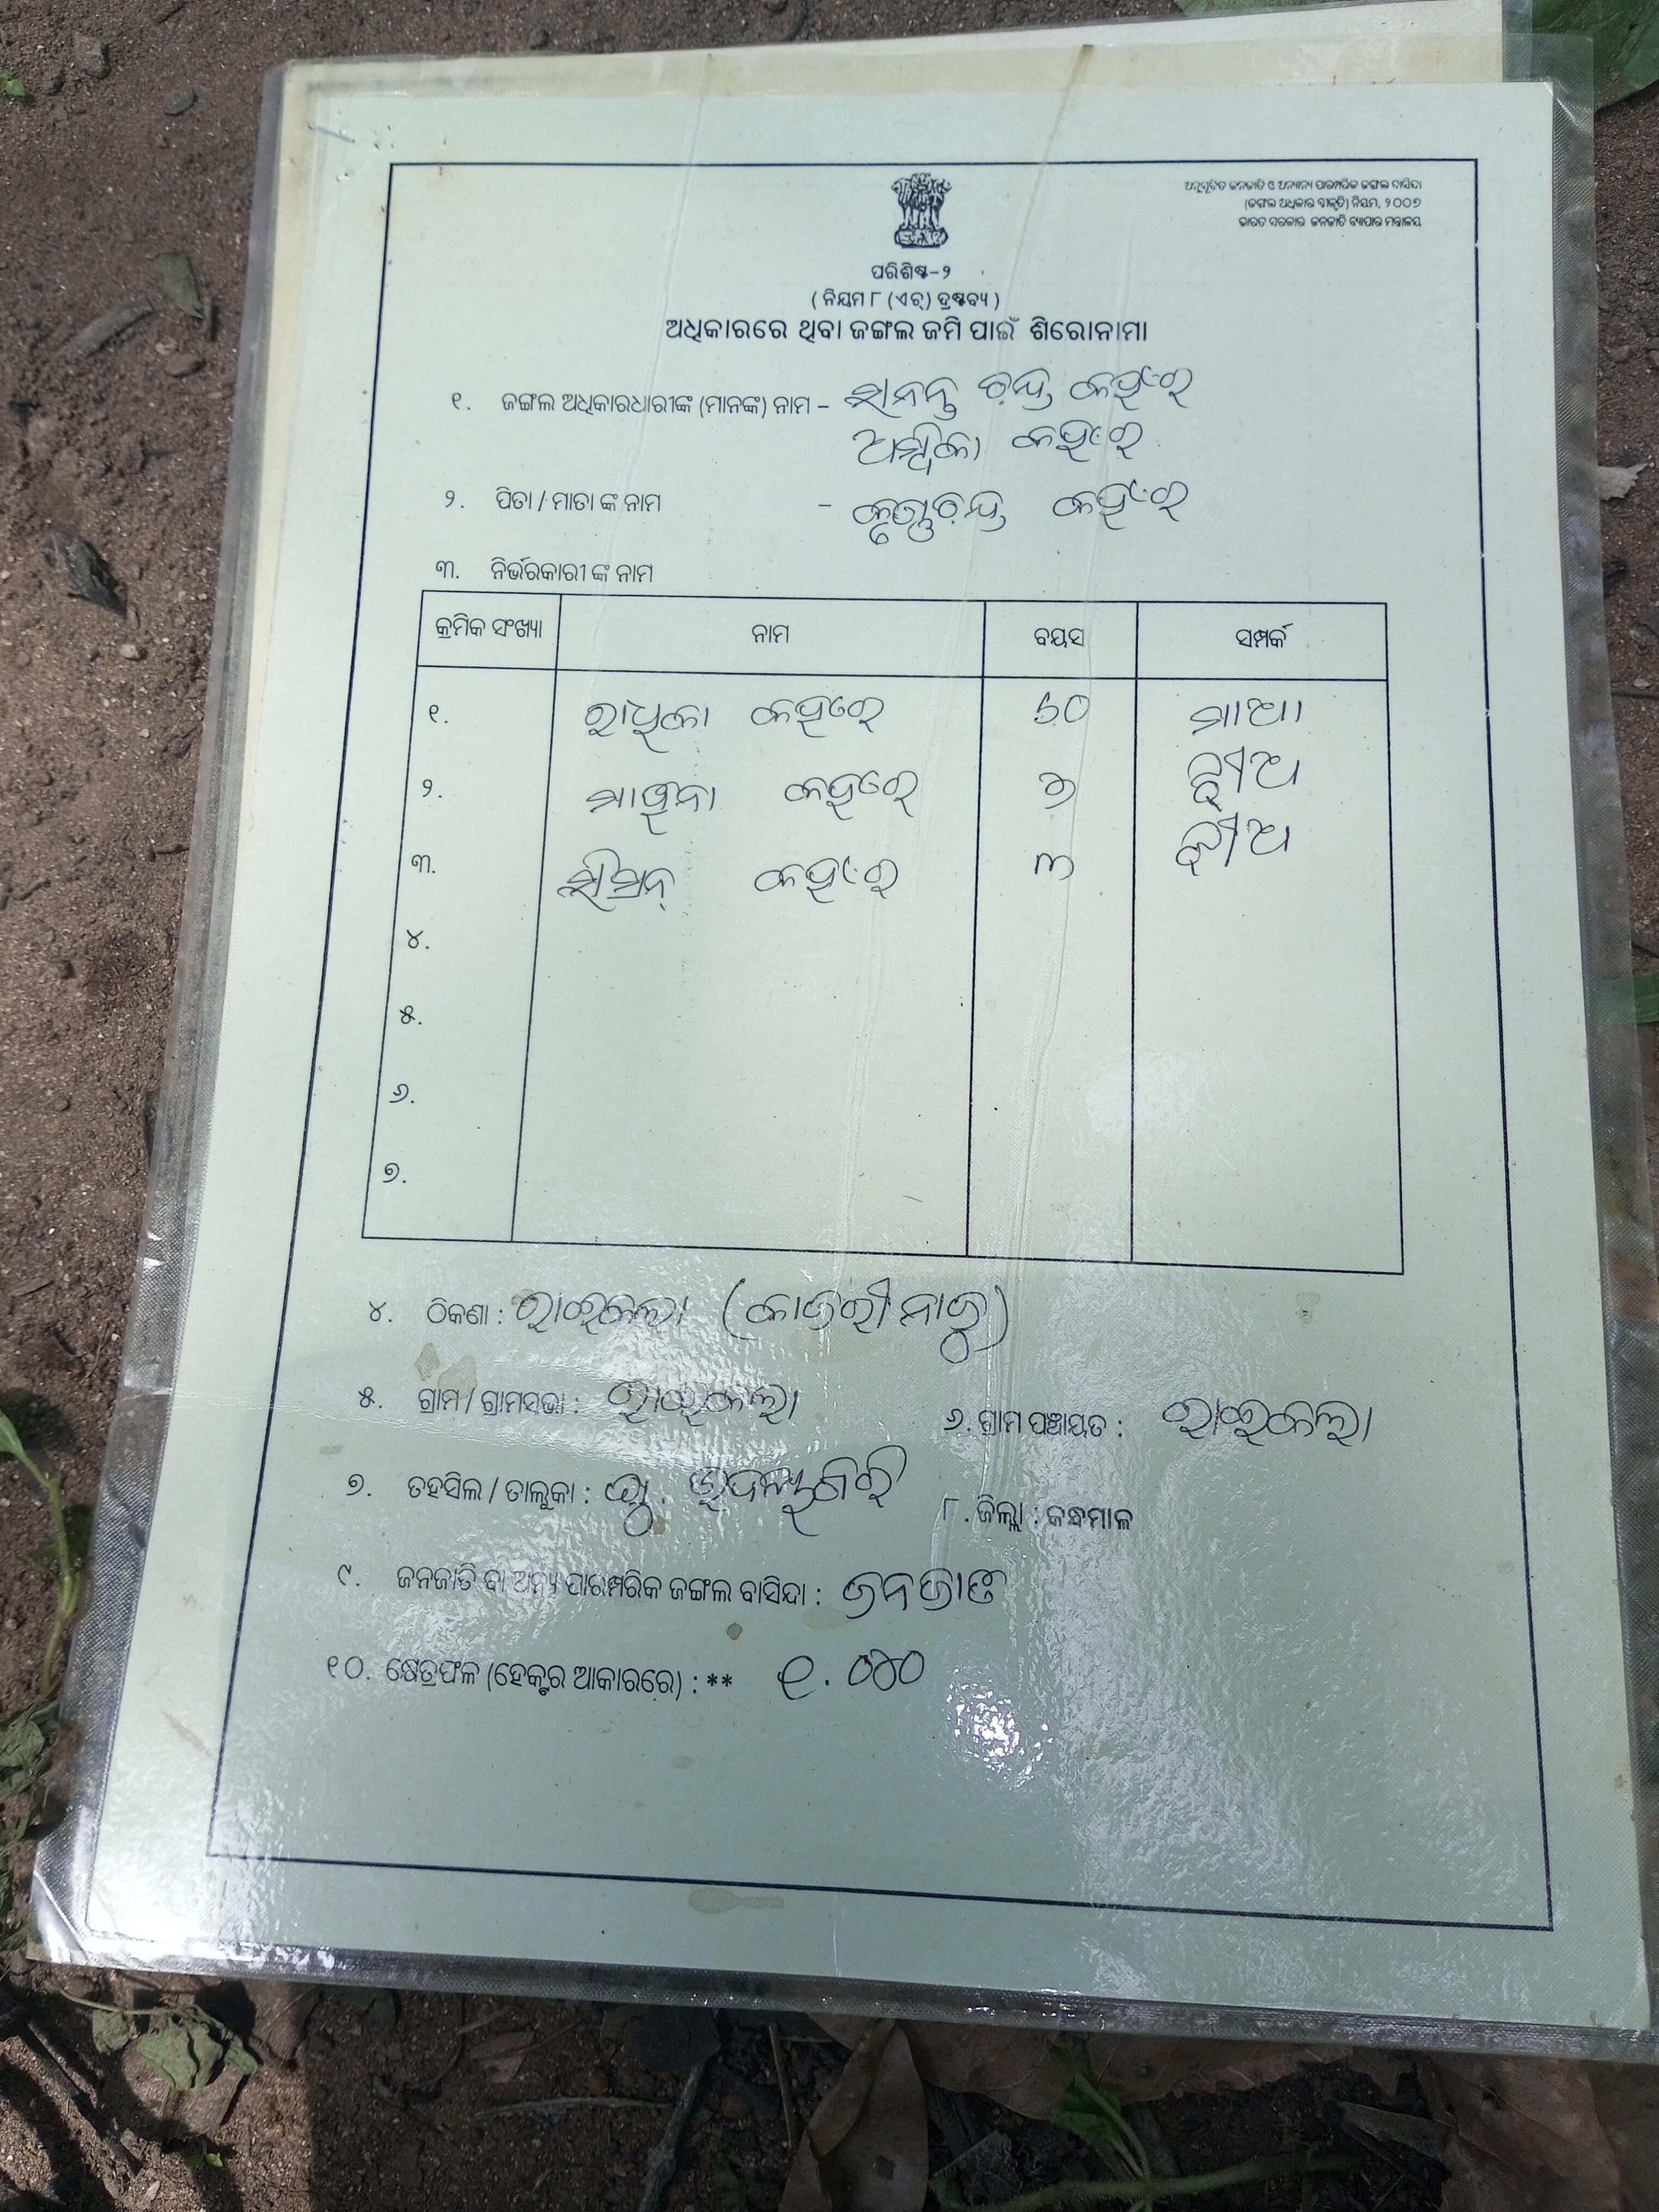 ଅନୁସୂଚିତ ଜନଜାତି ଓ ଅନ୍ୟାନ୍ୟ ପାରମ୍ପରିକ ଜଙ୍ଗଲ ବାସିନ୍ଦା
(ଜଙ୍ଗଲ ଅଧିକାର ସ୍ୱୀକୃତି) ନିୟମ, ୨୦୦୭
ଭାରତ ସରକାର ଜନଜାତି ବ୍ୟାପାର ମନ୍ତ୍ରାଳୟ
ପରିଶିଷ୍ଟ-୨
( ନିୟମ ୮ (ଏଚ୍) ଦ୍ରଷ୍ଟବ୍ୟ )
ଅଧିକାରରେ ଥିବା ଜଙ୍ଗଲ ଜମି ପାଇଁ ଶିରୋନାମା
୧. ଜଙ୍ଗଲ ଅଧିକାରଧାରୀଙ୍କ (ମାନଙ୍କ) ନାମ - ଚନ୍ଦ୍ର କହଁର
ଅମ୍ବିକା କହଁର
୨. ପିତା / ମାତା ଙ୍କ ନାମ - କୃଷ୍ଣଚନ୍ଦ୍ର କହଁର
୩. ନିର୍ଭରକାରୀ ଙ୍କ ନାମ
କ୍ରମିକ ସଂଖ୍ୟା ନାମ ବୟସ ସମ୍ପର୍କ
୧. ରାଧିକା କହଁର ୬୦ ମାଆ
୨. କହଁର ଝିଅ
୩. କହଁର ୩ ଝିଅ
୪.
୫.
୬.
୭.
୪. ଠିକଣା : ରାଇକଲା
୫. ଗ୍ରାମ / ଗ୍ରାମସଭା : ରାଇକଲା ୬. ଗ୍ରାମ ପଞ୍ଚାୟତ : ରାଇକଲା
୭. ତହସିଲ / ତାଲୁକା : ଜି. ଉଦୟଗିରି ୮. ଜିଲ୍ଲା : କନ୍ଧମାଳ
୯. ଜନଜାତି ବା ଅନ୍ୟ ପାରମ୍ପରିକ ଜଙ୍ଗଲ ବାସିନ୍ଦା : ଜନଜାତି
୧୦. କ୍ଷେତ୍ରଫଳ (ହେକ୍ଟର ଆକାରରେ) : ** ୧.୦୪୦